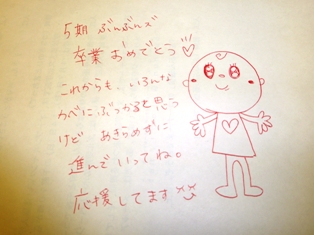 5期 ぶんぶんズ
卒業 おめでとう
これからも、いろんな
かべにぶつかると思う
けど あきらめずに
進んで いってね。
応援してます